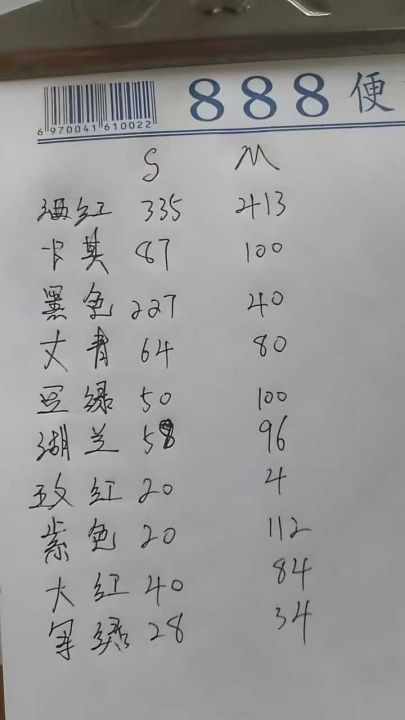 6 970041 610022
888便
S M
酒红 335 413
卡其 87 100
黑色 227 40
丈青 64 80
豆绿 50 100
湖兰 58 96
玫红 20 4
紫色 20 112
大红 40 84
军绿 28 34